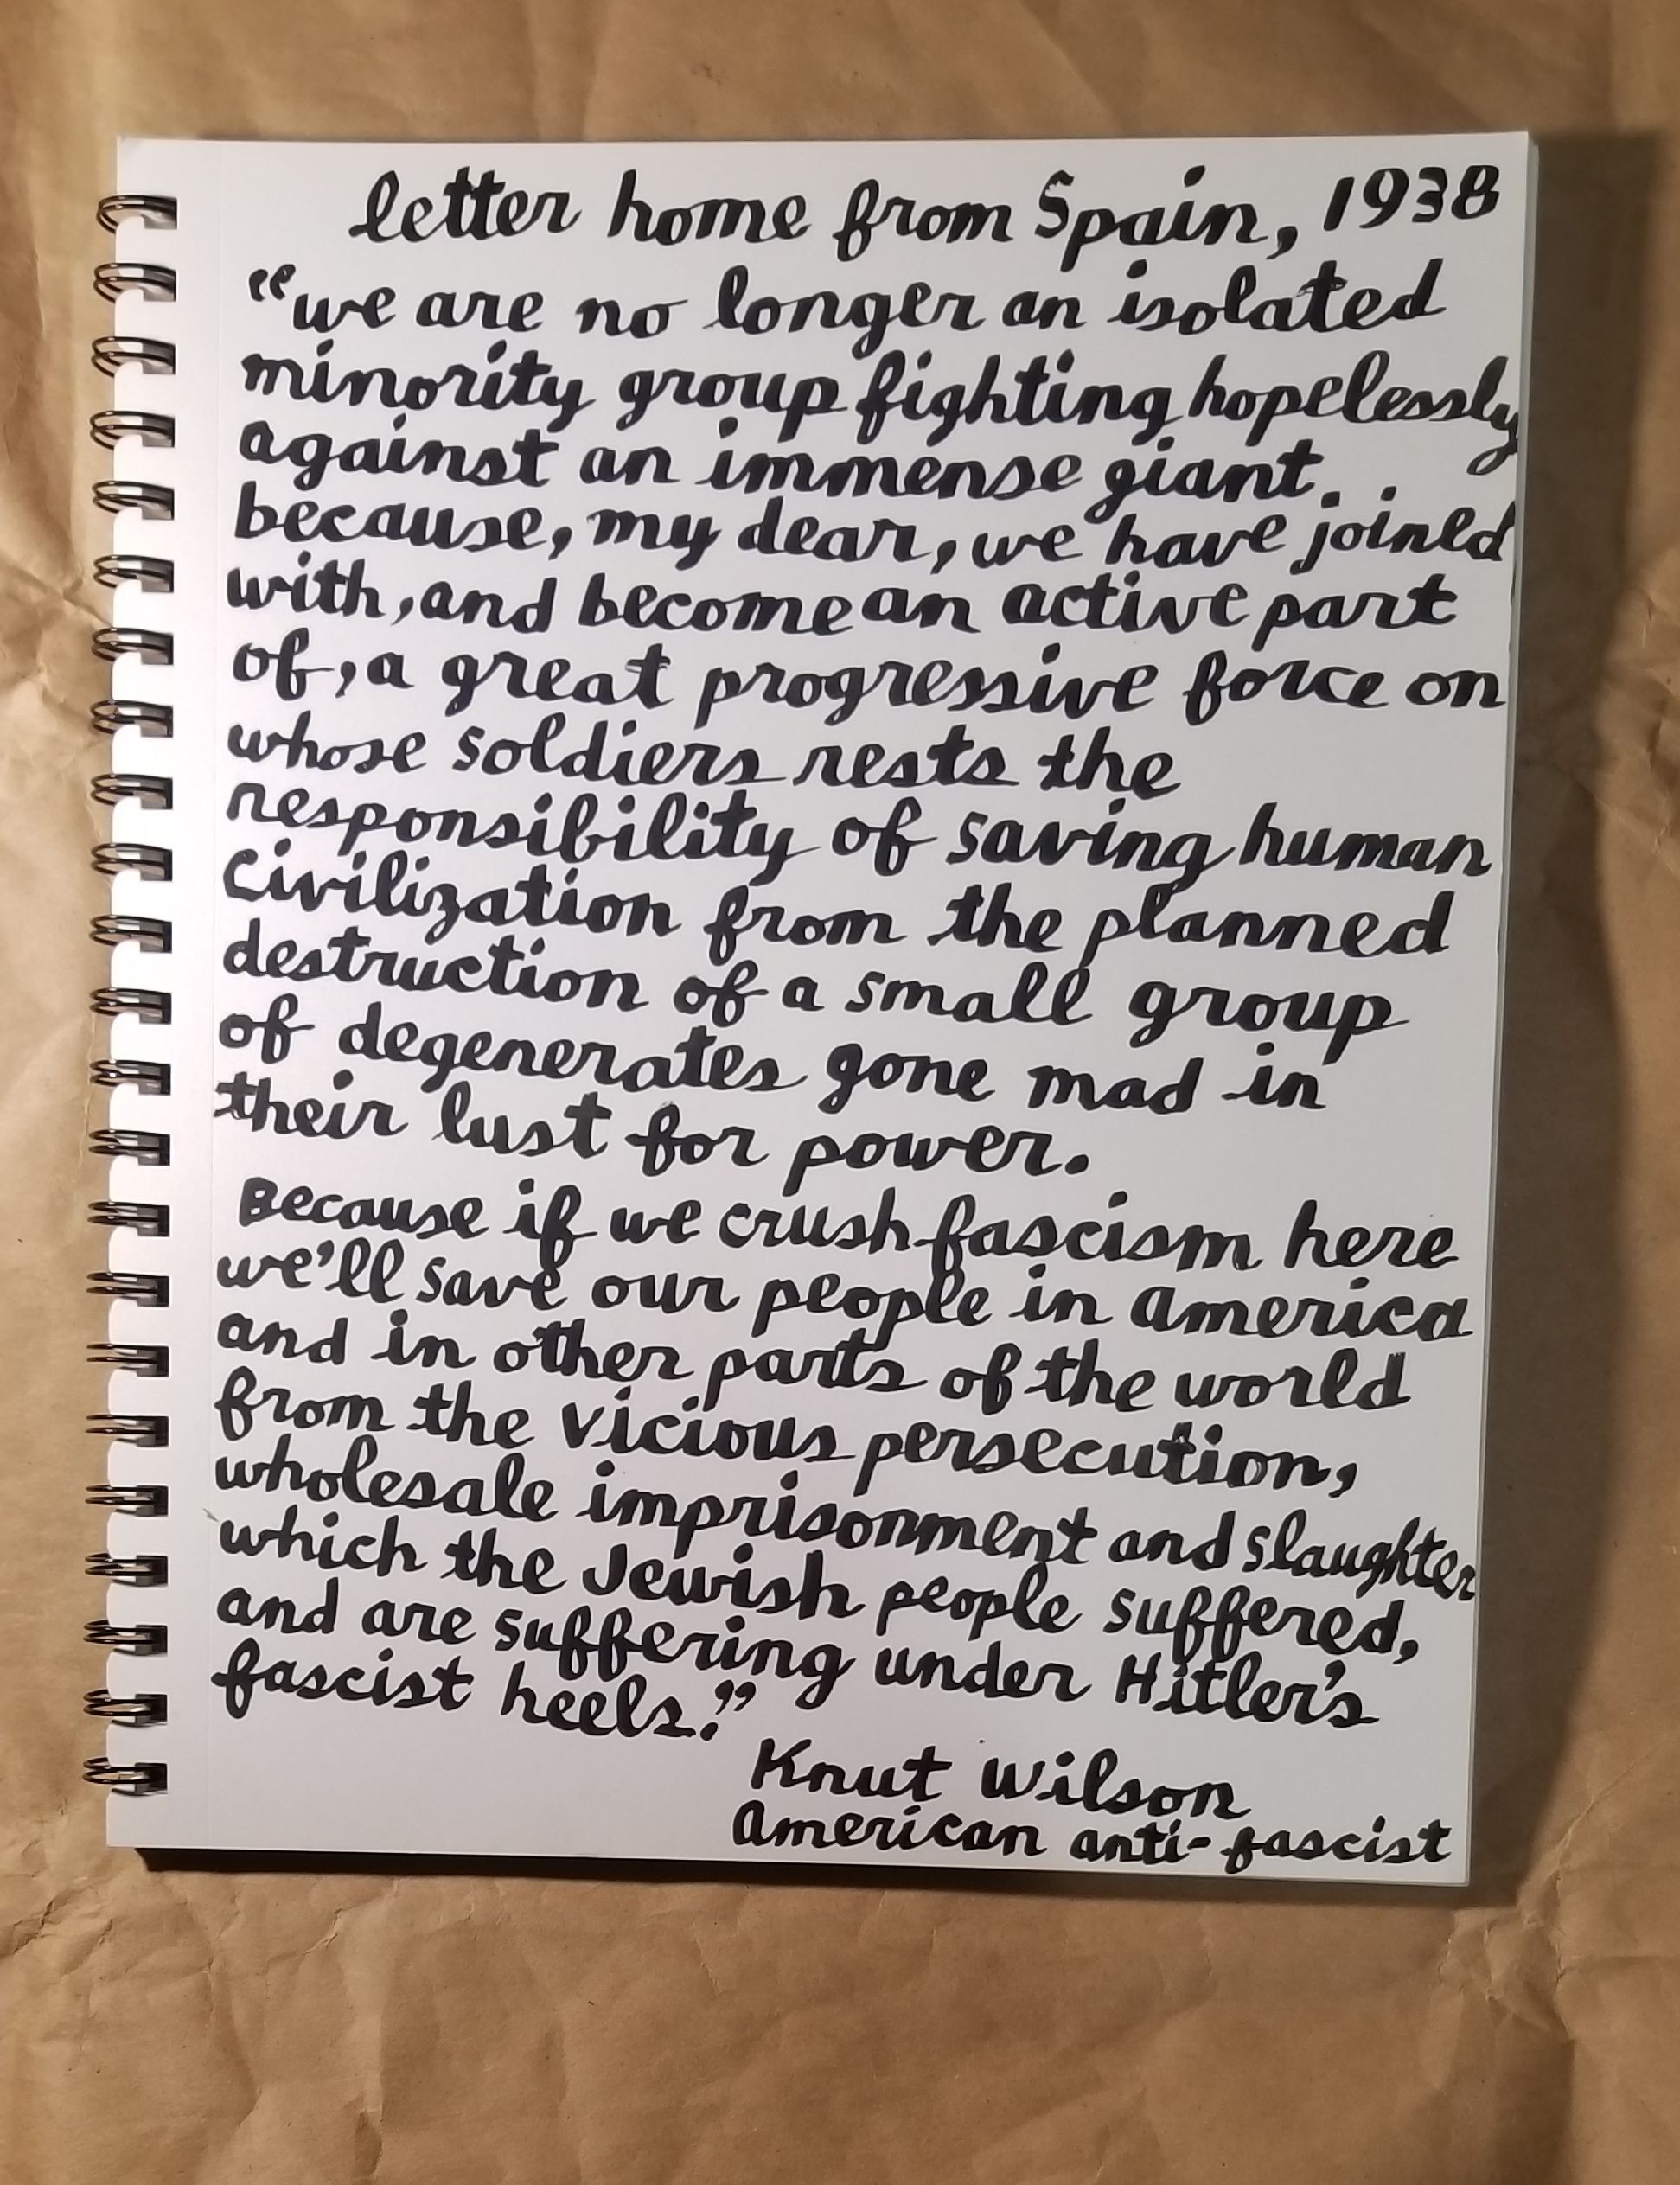 letter home from Spain, 1938
"we are no longer an isolated
minority group fighting hopelessly
against an immense giant.
because, my dear, we have joined
with, and become an active part
of, a great progressive force on
whose soldiers rests the
responsibility of saving human
civilization from the planned
destruction of a small group
of degenerates gone mad in
their lust for power.
Because if we crush fascism here
we'll save our people in america
and in other parts of the world
from the vicious persecution,
wholesale imprisonment and slaughter
which the Jewish people suffered,
and are suffering under Hitler's
fascist heels."
Knut Wilson
American anti-fascist